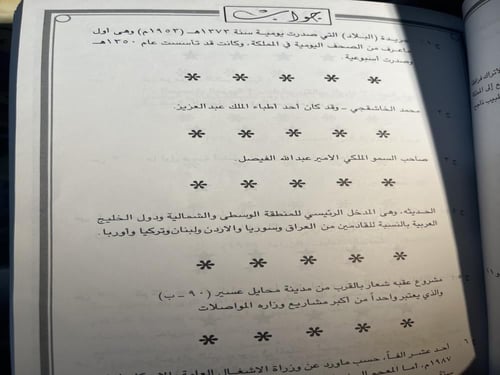 جواب
ج ١ـ جريدة (البلاد) التي صدرت يومية سنة ١٣٧٣هـ (١٩٥٣م) وهى أول
ماعرف من الصحف اليومية في المملكة، وكانت قد تأسست عام ١٣٥٠هـ
وصدرت أسبوعية.
* * * * *
محمد الخاشقجي ـ وقد كان أحد أطباء الملك عبدالعزيز.
* * * * *
صاحب السمو الملكي الامير عبدالله الفيصل.
* * * * *
الحديثه، وهى المدخل الرئيسي للمنطقة الوسطى والشمالية ودول الخليج
العربية بالنسبة للقادمين من العراق وسوريا والاردن ولبنان وتركيا وأوربا.
* * * * *
مشروع عقبه شعار بالقرب من مدينة محايل عسير (٩٠ ـ ب)
والذي يعتبر واحداً من أكبر مشاريع وزاره المواصلات
* * * * *
أحد عشر الفاً، حسب ماورد عن وزراة الاشغال العامة
١٩٨٧م، أما المعجم